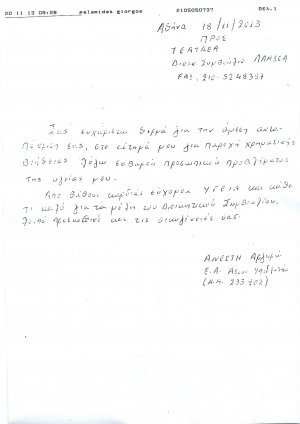 20 11 13 09:28 palamidas giorgos 2105050737 ΣΕΛ.1
Αθήνα 18/11/2013
ΠΡΟΣ
ΤΕΑΤΔΕΑ
Διοικ. Συμβούλιο
FAX. 210-5248367
Σας ευχαριστώ θερμά για την άμεση αντα-
πόκρισή σας, στο αίτημά μου για παροχή χρηματικής
βοήθειας λόγω σοβαρού προσωπικού προβλήματος
της υγείας μου.
Από βάθους καρδιάς εύχομαι ΥΓΕΙΑ και κάθε
τι καλό για τα μέλη του Διοικητικού Συμβουλίου,
λοιπό προσωπικό και τις οικογένειές σας.
ΑΝΕΣΤΗ
Ε.Α.
(Α.Μ. 233202)